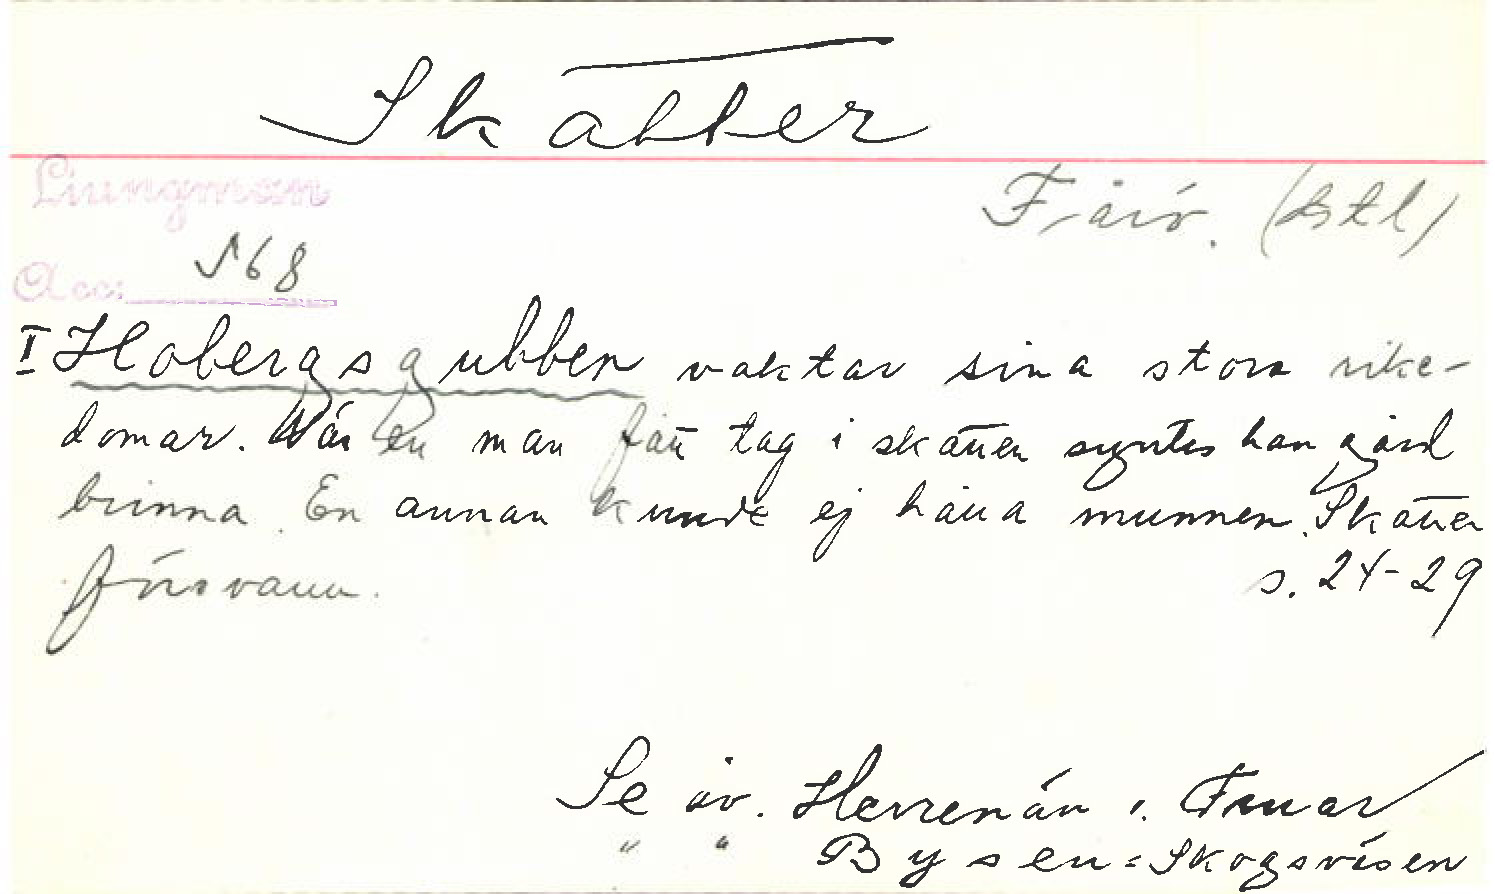 Skatter
Liungman
Fårö. (Gtl)
Acc: 568
I Hobergsgubben vaktar sina stora rike-
domar. När en man fått tag i skatten syntes han gård
brinna. En annan kunde ej hålla munnen. Skatten
försvann.
s. 24-29
Se äv.
" " Bysen = Skogsråen